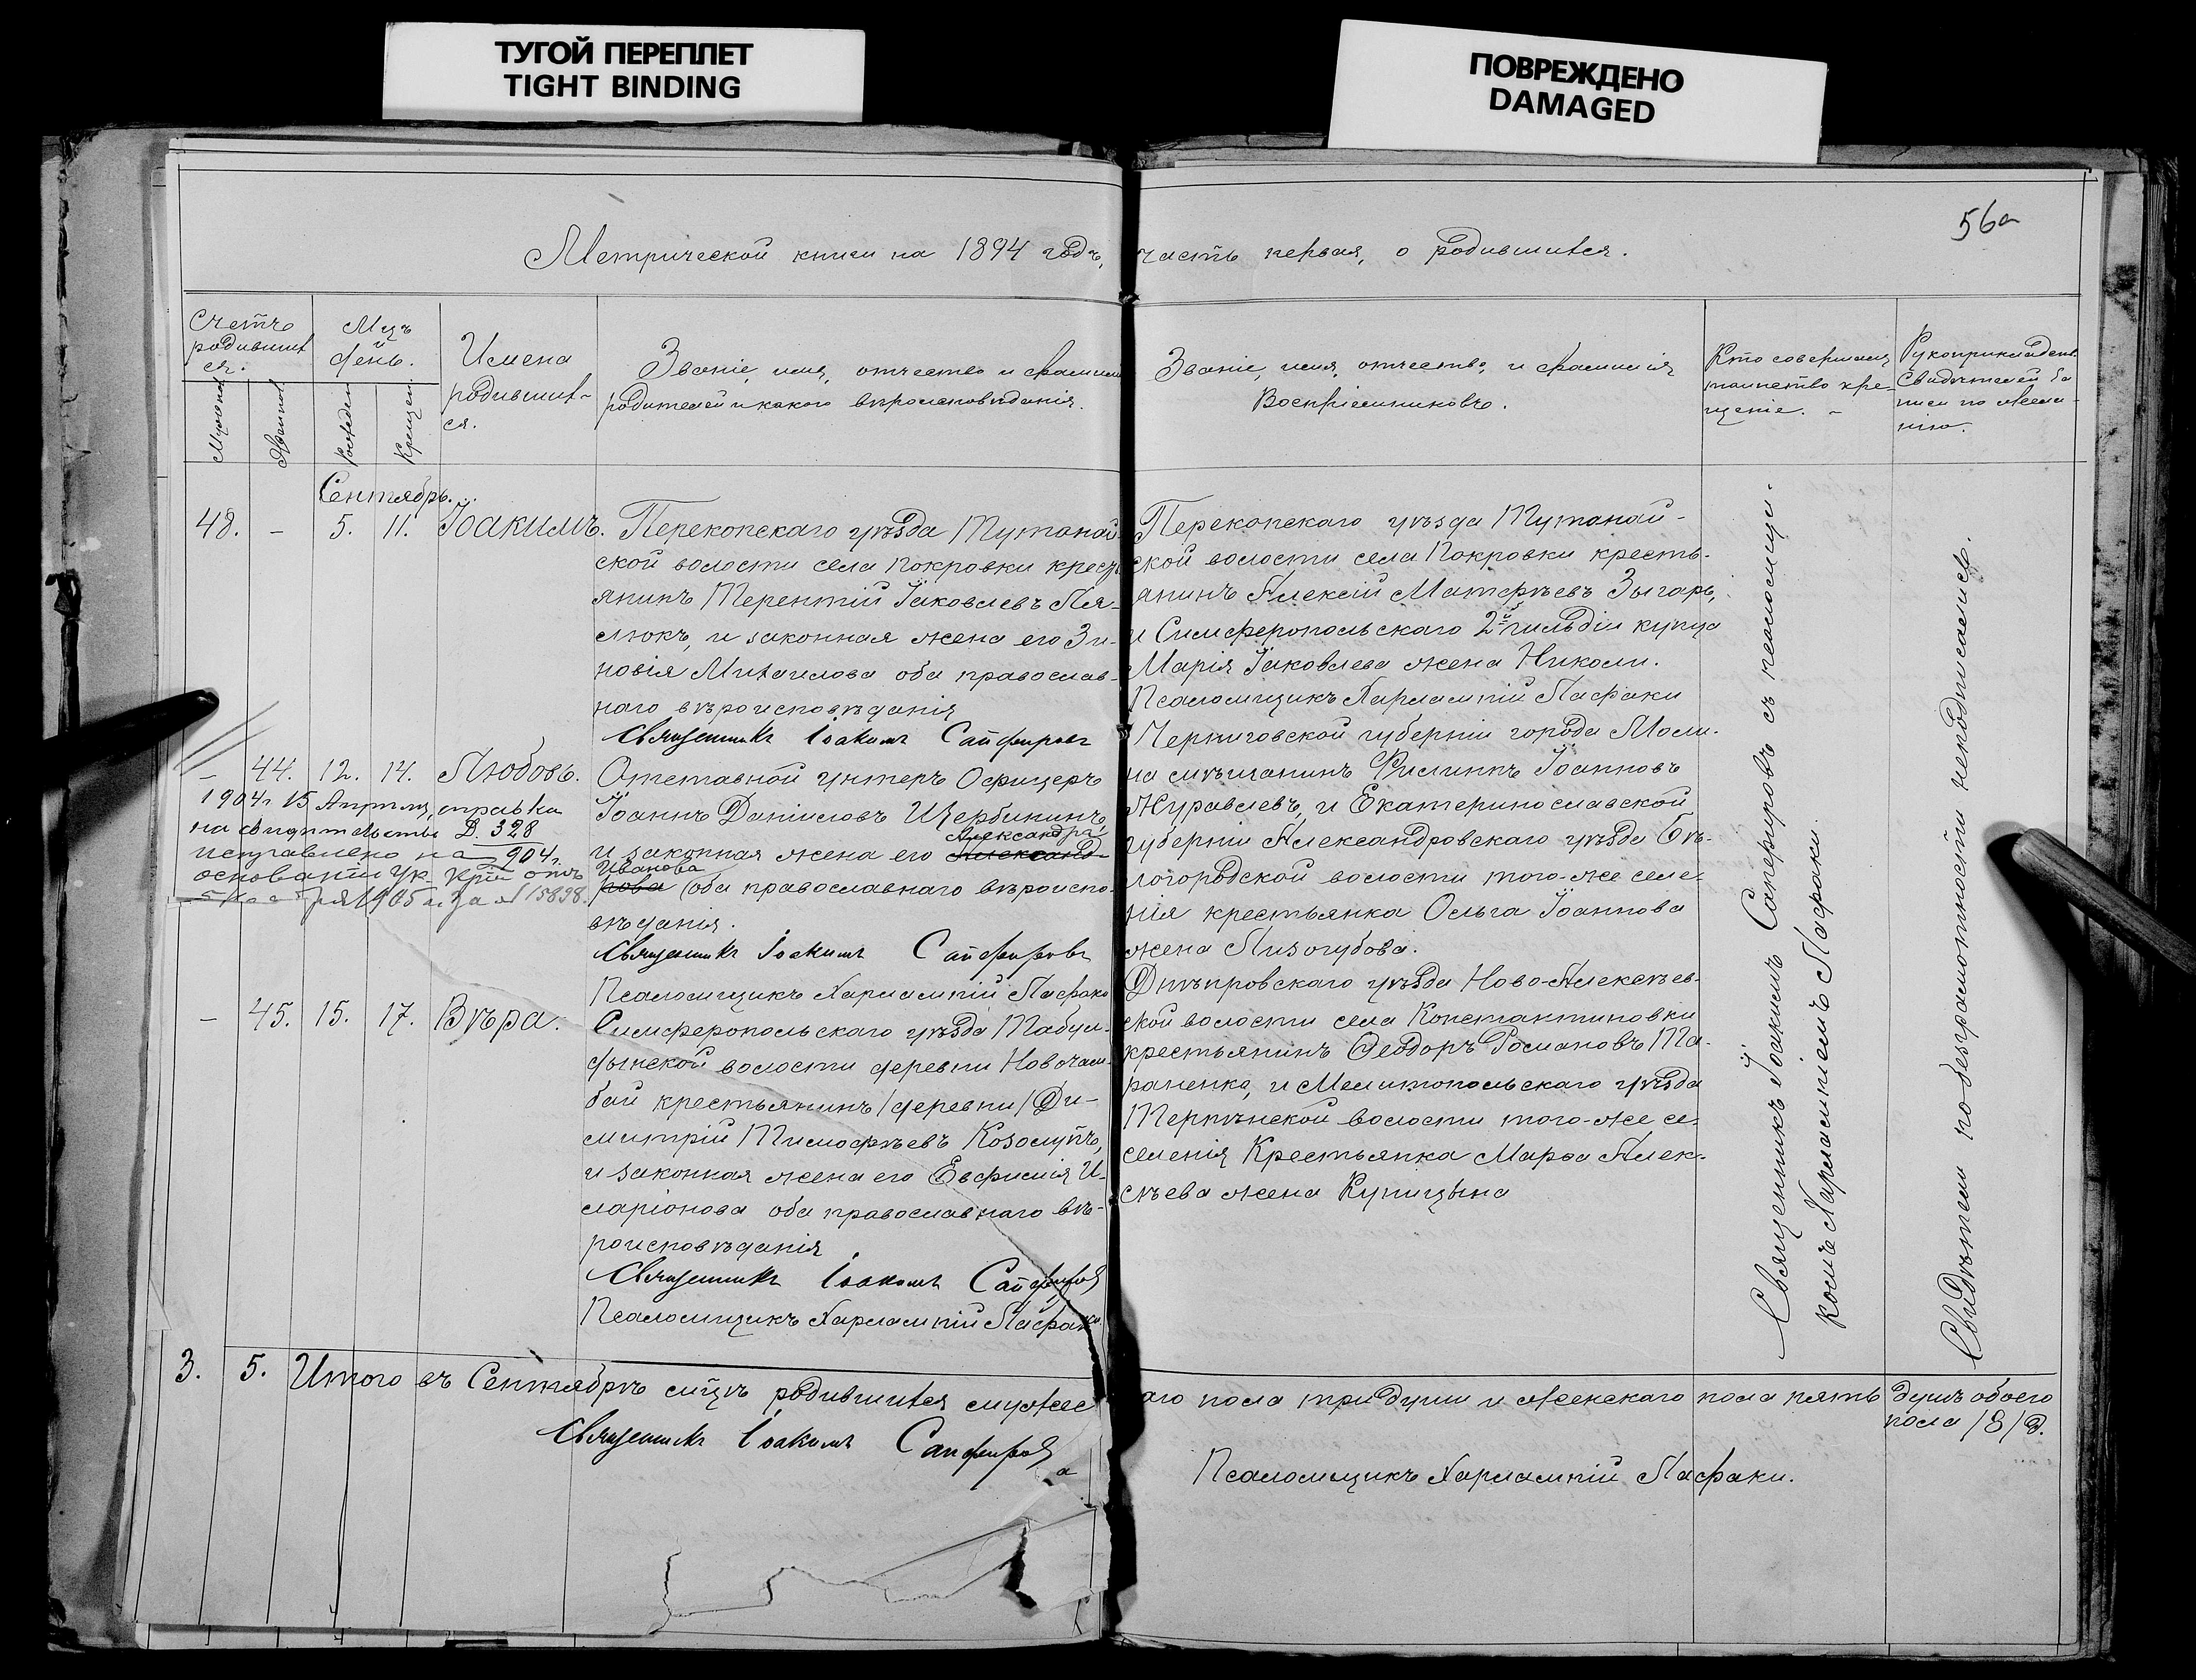 ТУГОЙ ПЕРЕПЛЕТ
TIGHT BINDING
ПОВРЕЖДЕНО
DAMAGED
56а
Метрической книги на 1894 годъ, часть первая, о родившихся.
Счетъ
родивших
ся.
Мужеска
Женска
Мцъ
и
день.
Рожден
Крещен
Имена
родивших-
ся.
Званіе, имя, отчество и фамилія
родителей и какого вѣроисповѣданія.
Званіе, имя, отчество, и фамилія
Воспріемниковъ.
Кто совершалъ
таинство кре-
щенія.
Рукоприкладств.
свидѣтелей за
писи по жела-
нію.
Сентябрь.
48. - 5. 11. Іоакимъ.
Перекопскаго уѣзда Тутанай-
ской волости села Покровки кресть
янинъ Терентій Іаковлевъ Пя-
люкъ, и законная жена его Зи-
новія Михаилова оба православ-
наго вѣроисповѣданія
Священникъ Іоакимъ Сапфировъ
Перекопскаго уѣзда Тутанай-
ской волости села Покровки кресть-
янинъ Алексій Матѳѣевъ Зыгарь,
и Симферопольскаго 2й гильдіи купца
Марія Іаковлева жена Николи.
Псаломщикъ Харлампій Пасфаки
- 44. 12. 14. Любовь.
1904 г 15 Апрѣля, справка
на свидѣтельствѣ Д. 328
904 г.
исправлено на
основаніи ук. крій отъ
1905 г. за № 15898.
Отставной унтеръ Офицеръ
Іоаннъ Даніиловъ Щербининъ,
Александра
и законная жена его Александ-
Иванова
рова оба православнаго вѣроиспо-
вѣданія.
Священникъ Іоакимъ Сапфировъ
Псаломщикъ Харлампій Пасфаки
Черниговской губерніи города Мгли-
на мѣщанинъ Филиппъ Іоанновъ
Журавлевъ, и Екатеринославской
губерніи Александровскаго уѣзда Бѣ-
логородской волости того-же селе-
нія крестьянка Ольга Іоаннова
жена Лизогубова.
- 45. 15. 17. Вѣра.
Симферопольскаго уѣзда Табул-
дынской волости деревни Новочам-
бай крестьянинъ /деревни/ Ди-
митрій Тимофѣевъ Козолупъ,
и законная жена его Евфимія И-
ларіонова оба православнаго вѣ-
роисповѣданія
Священникъ Іоакимъ Сапфировъ
Псаломщикъ Харлампій Пасфаки
Днѣпровскаго уѣзда Ново-Алексѣев-
ской волости села Константиновки
крестьянинъ Ѳеодоръ Романовъ Та-
раненко, и Мелитопольскаго уѣзда
Терпѣнской волости того-же се-
селенія Крестьянка Марѳа Алек-
сѣева жена Куницына
Священникъ Іоакимъ Сапфировъ съ псаломщи-
комъ Харлампіемъ Пасфаки.
Свидѣтели по безграмотности неподписались.
3. 5. Итого въ Сентябрѣ мцѣ родившихся мужескаго пола три души и женскаго пола пять душъ обоего
пола /8/ д.
Священникъ Іоакимъ Сапфировъ
Псаломщикъ Харлампій Пасфаки.